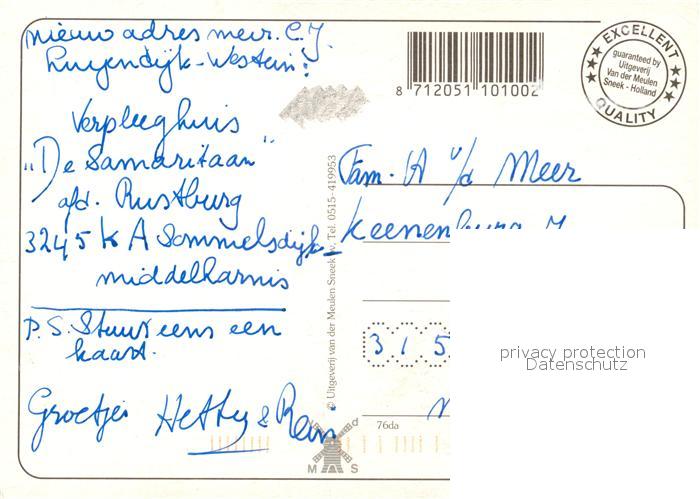 nieuw adres mevr. C.J.
Luyendijk-Westein:
Verpleeghuis
"De Samaritaan"
afd. Rustburg
3245 KA Sommelsdijk-
middelharnis
P.S. Stuur eens een
kaart.
Groetjes Hetty & Rein
8 712051 101002
EXCELLENT
guaranteed by
Uitgeverij
Van der Meulen
Sneek - Holland
QUALITY
© Uitgeverij van der Meulen Sneek bv. Tel. 0515-419953
Fam. A v/d Meer
Keenenburg
3 1 5
76da
M S
privacy protection
Datenschutz